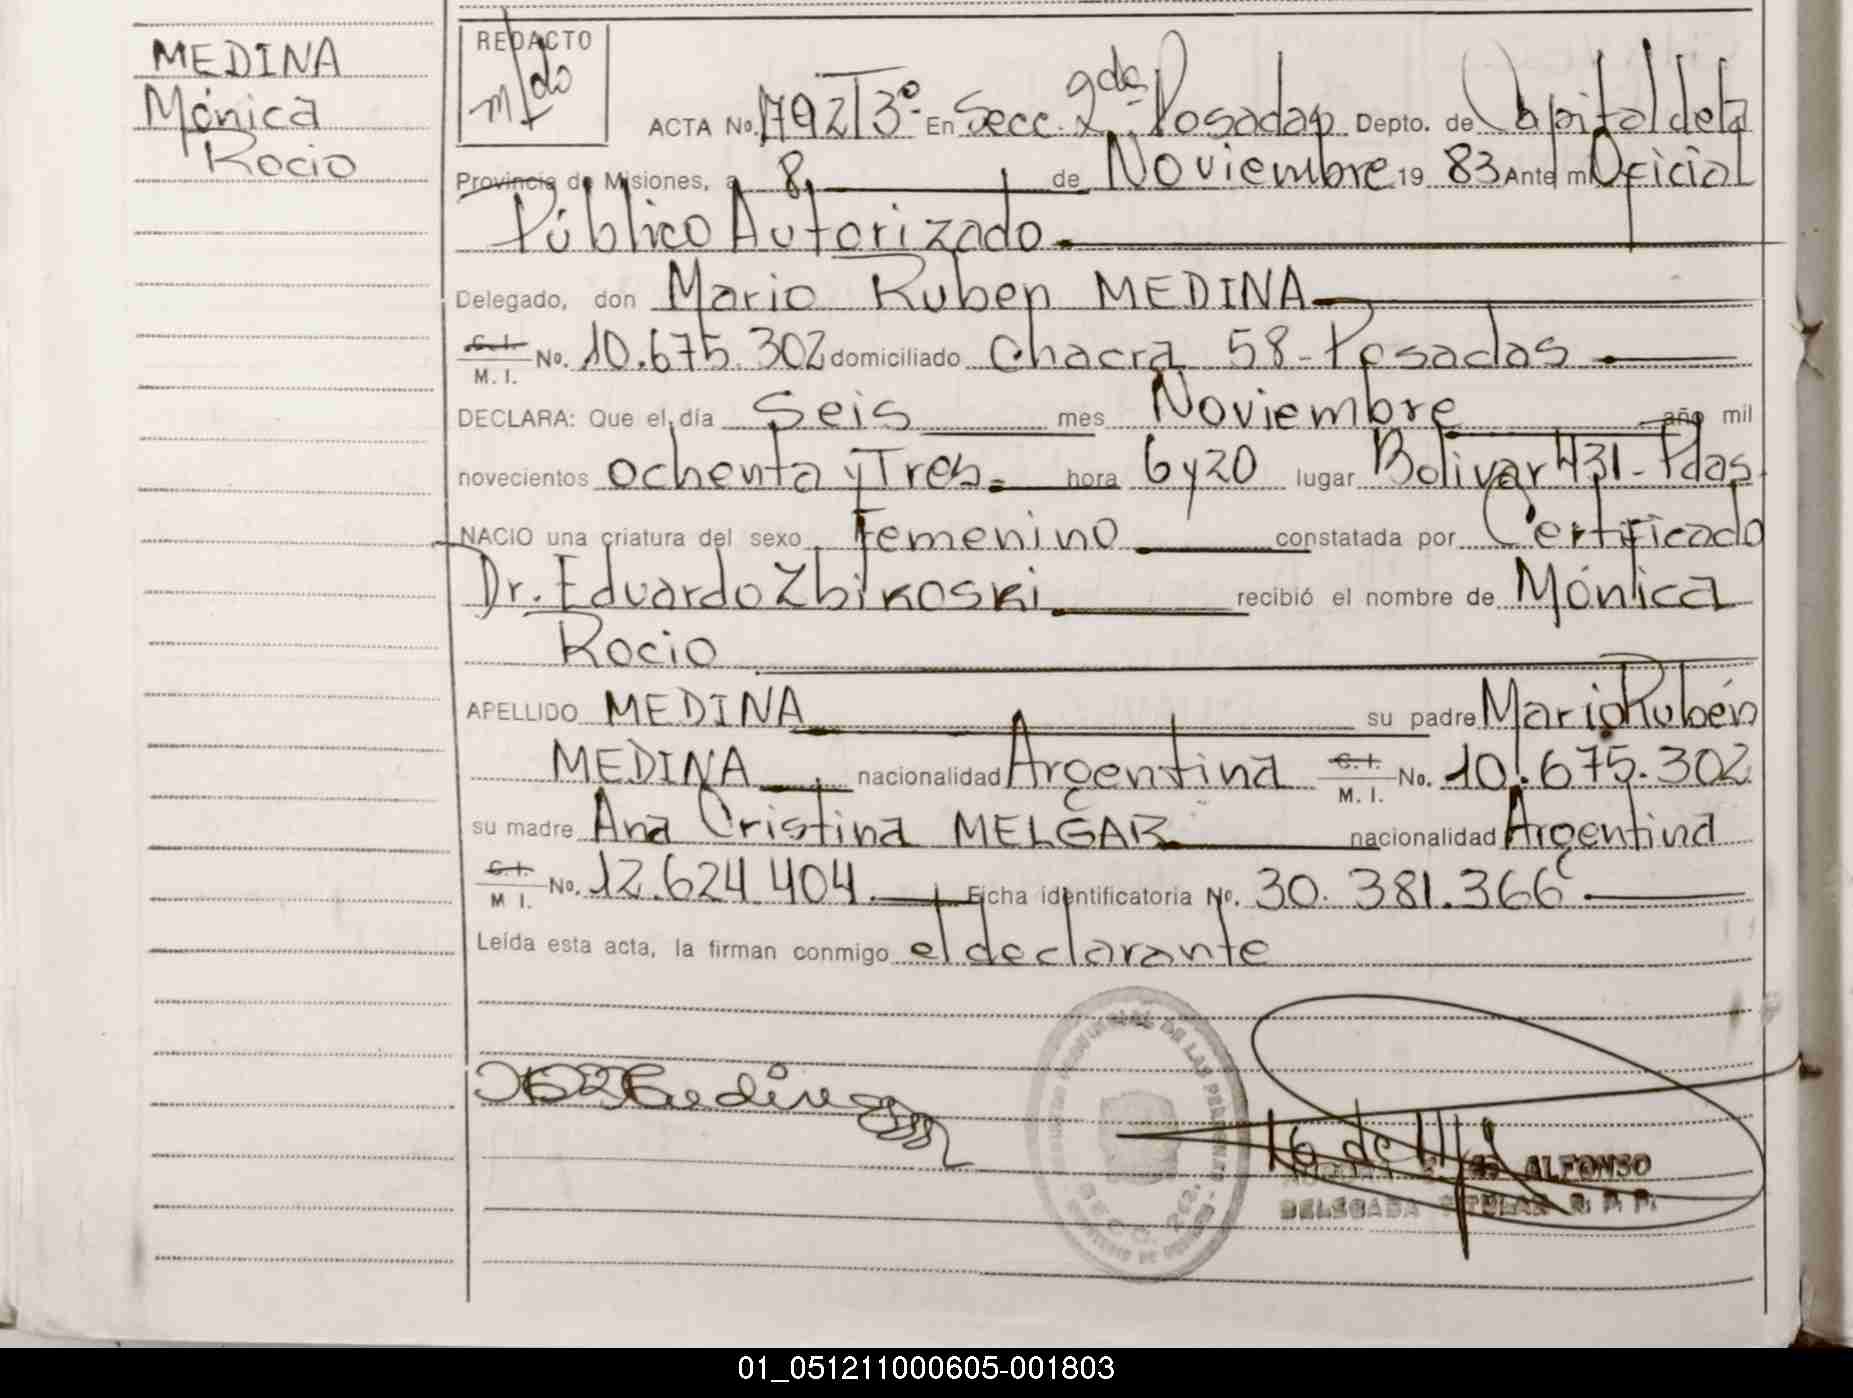 MEDINA
Mónica
Rocio
REDACTO
ACTA No. 1792 T 3º En Secc. 2da Posadas Depto. de Capital de la
Provincia de Misiones, a 8 de Noviembre 19 83 Ante mi Oficial
Público Autorizado
Delegado, don Mario Ruben MEDINA
C.I. M. I. No. 10.675.302 domiciliado Chacra 58-Posadas
DECLARA: Que el día Seis mes Noviembre año mil
novecientos ochenta y Tres hora 6 y 20 lugar Bolivar 431-Pdas.
NACIO una criatura del sexo Femenino constatada por Certificado
Dr. Eduardo Zbikoski recibió el nombre de Mónica
Rocio
APELLIDO MEDINA su padre Mario Rubén
MEDINA nacionalidad Argentina C.I. M. I. No. 10.675.302
su madre Ana Cristina MELGAR nacionalidad Argentina
C.I. M I. No. 12.624.404. Ficha identificatoria No. 30.381.366
Leída esta acta, la firman conmigo el declarante
DE LAS PERSONAS
SECC. 2da.
ALFONSO
DELEGADA TITULAR R. P. P.
01_051211000605-001803